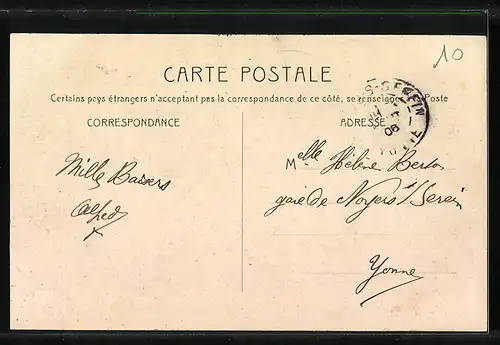 10
CARTE POSTALE
Certains pays étrangers n'acceptant pas la correspondance de ce côté, se renseigner Poste
CORRESPONDANCE
ADRESSE
Mille Baisers
Alfred
Melle Hélène Berton
gare de Noyers s/Serein
Yonne